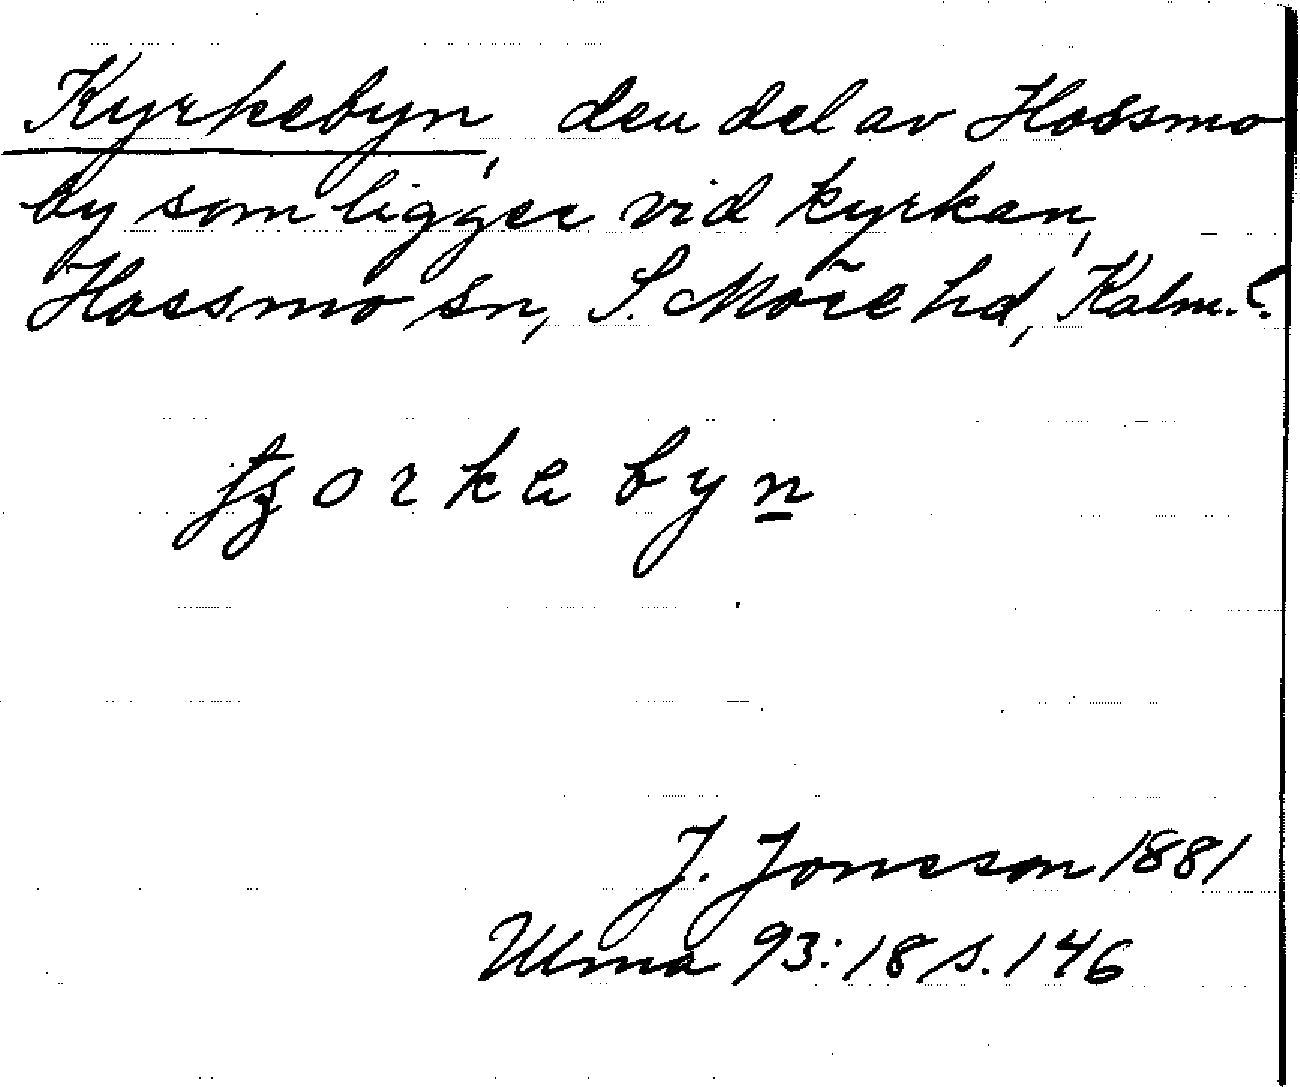 Kyrkebyn, den del av Hossmo
by som ligger vid kyrkan,
Hossmo sn, S. Möre hd, Kalm. l.
J. Jonsson 1881
Ulma 93:18 s. 146